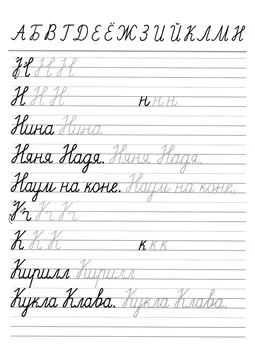 А Б В Г Д Е Ё Ж З И Й К Л М Н
Н Н Н
Н Н Н н н н
Нина Нина
Няня Надя. Няня Надя.
Наум на коне. Наум на коне.
К К К
К К К к к к
Кирилл Кирилл
Кукла Клава. Кукла Клава.